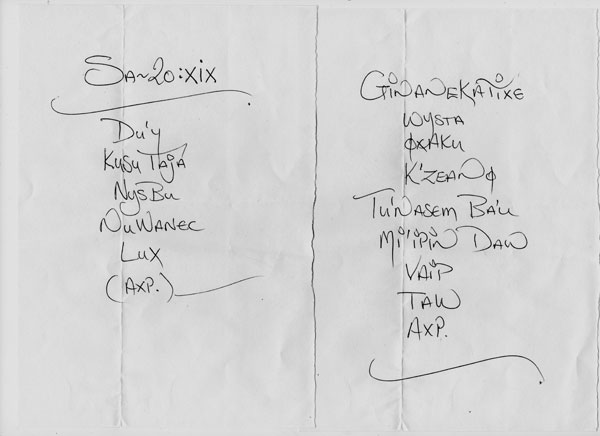 SA~20:xix
Du'y
Kusu Taja
NysBu
NuWanec
Lux
(Axp.)
GiNANEKATixE
WYSTA
ΦXAKU
K'ZEANΦ
Tu'NASEM BA'u
Mi'iPiN DAW
VAiP
TAW
AXP.